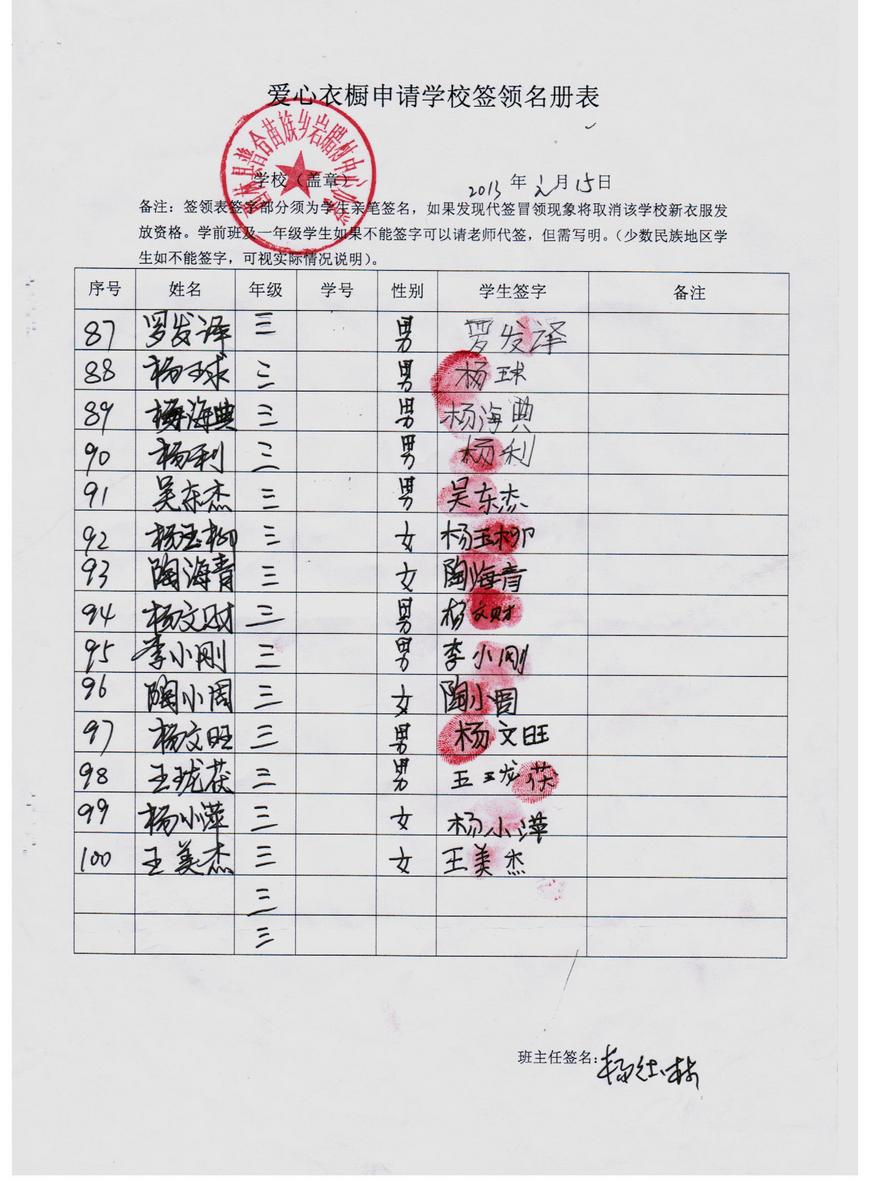 爱心衣橱申请学校签领名册表
学校（盖章）
2013 年 月 15日
备注：签领表签字部分须为学生亲笔签名，如果发现代签冒领现象将取消该学校新衣服发
放资格。学前班及一年级学生如果不能签字可以请老师代签，但需写明。（少数民族地区学
生如不能签字，可视实际情况说明）。
序号 姓名 年级 学号 性别 学生签字 备注
87 罗发泽 三 男 罗发泽
88 杨玉球 三 男 杨玉球
89 杨海典 三 男 杨海典
90 杨利 三 男 杨利
91 吴东杰 三 男 吴东杰
92 杨玉柳 三 女 杨玉柳
93 陶海青 三 女 陶海青
94 杨文财 三 男 杨文财
95 李小刚 三 男 李小刚
96 陶小周 三 女 陶小周
97 杨文旺 三 男 杨文旺
98 王珑茯 三 男 王珑茯
99 杨小萍 三 女 杨小萍
100 王美杰 三 女 王美杰
三
三
班主任签名：